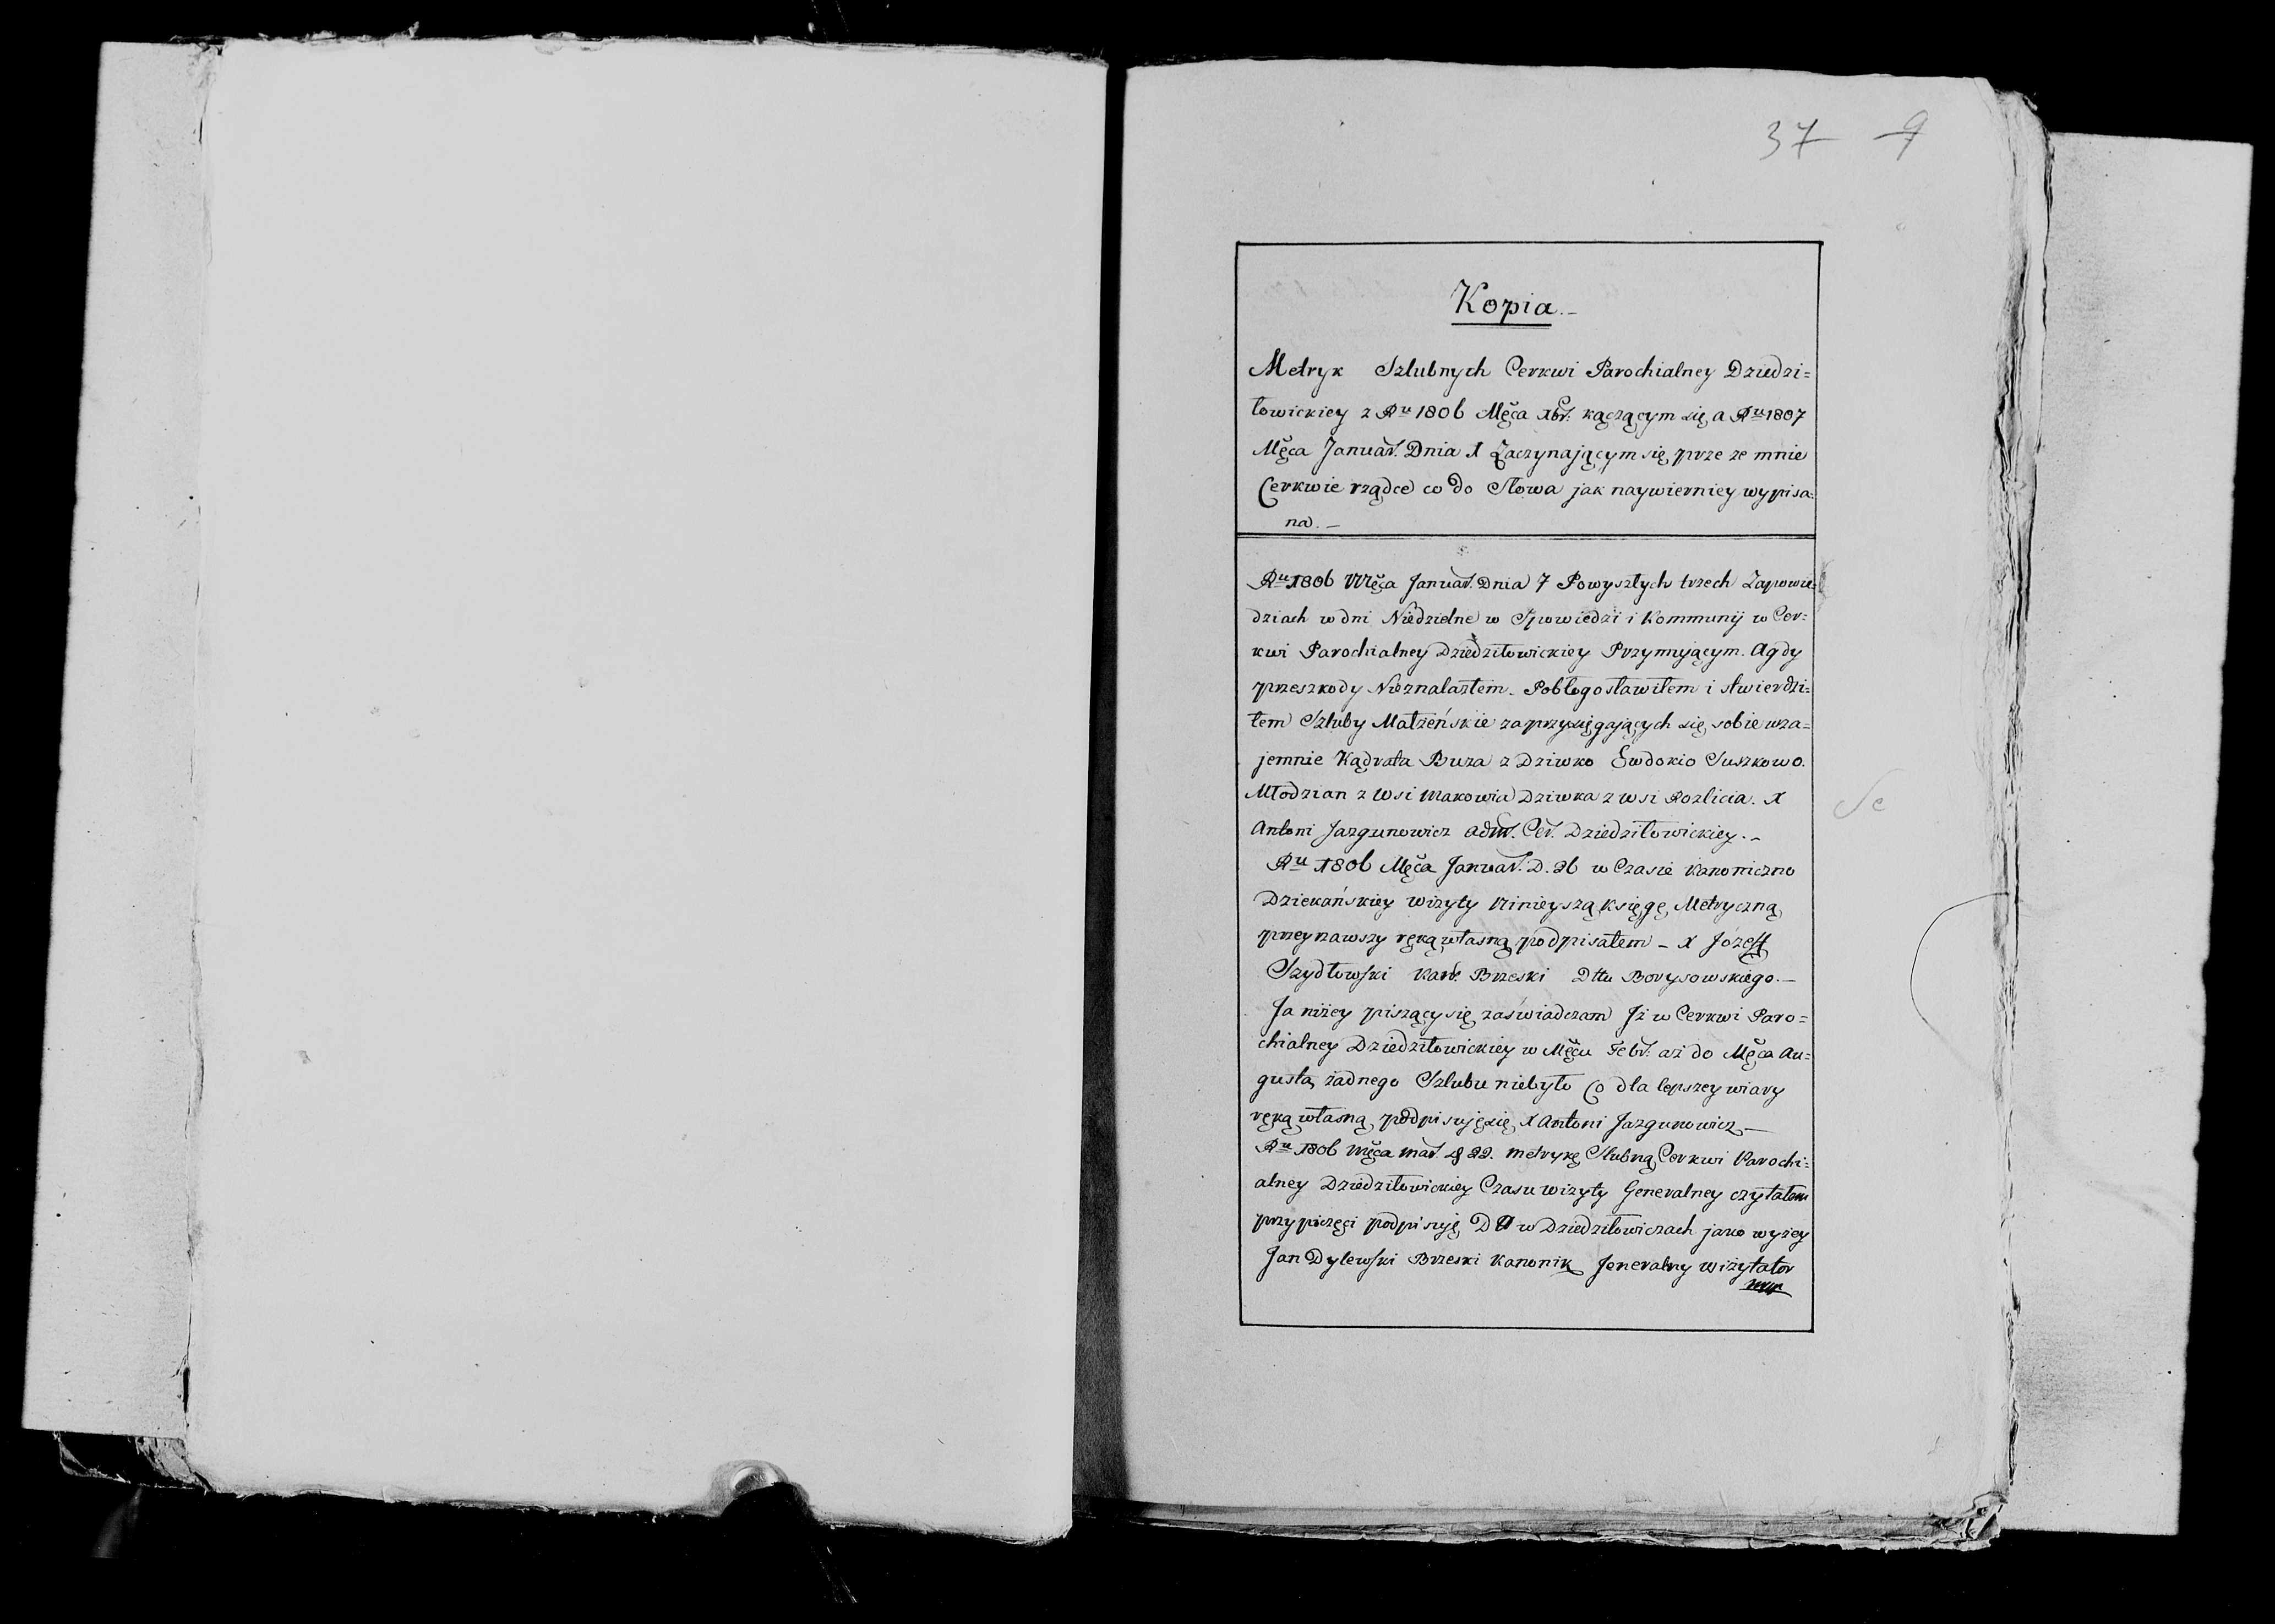 37 9
Kopia.–
Metryk Szlubnych Cerkwi Parochialney Dziedzi=
łowickiey z Ru 1806 Męca Xbr. kączącym się a Ru 1807
Męca Januar. Dnia 1 Zaczynającym się prze ze mnie
Cerkwie rządce co do Słowa jak naywierniey wypisa=
na.–
Ru 1806 Męca Januar. Dnia 7 Powyszłych trzech Zapowie=
dziach w dni Niedzielne w Spowiedzi i Kommunij w Cer=
kwi Parochialney Dziedziłowickiey Przymującym. A gdy
przeszkody Nieznalazłem. Pobłogosławiłem i stwierdzi=
łem Szluby Małżeńskie zaprzysięgających się sobie wza=
jemnie Kądrata Buza z Dziwko Ewdokio Suszkowo.
Młodzian z Wsi Makowia Dziwka z wsi Rozlicia. X
Antoni Jazgunowicz Adm. Cer. Dziedziłowickiey.–
Ru 1806 Męca Januar. D. 26 w Czasie Kanoniczno
Dziekańskiey wizyty Ninieyszą Księgę Metryczną
przeyrzawszy ręką własną podpisałem – X Józeff
Szydłowski Kan. Brzeski Dttu Borysowskiego.–
Ja niżey piszący się zaświadczam Jż w Cerkwi Paro=
chialney Dziedziłowickiey w Męcu Febr. aż do Męca Au=
gusta żadnego Szlubu niebyło Co dla lepszey wiary
ręką własną podpisuję się X Antoni Jazgunowicz –
Ru 1806 Męca Mar. 22. metrykę Slubną Cerkwi Parochi=
alney Dziedziłowickiey Czasu wizyty Generalney czytałem
przy pieczęci podpisuję D w Dziedziłowiczach jako wyżey
Jan Dylewski Brzeski Kanonik Jeneralny wizytator
mp